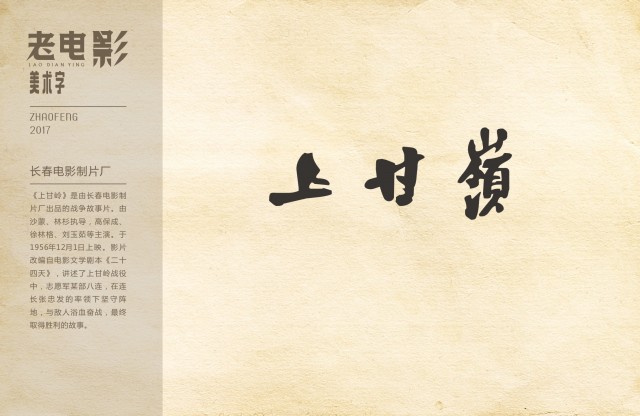 老电影
LAO DIAN YING
美术字
ZHAOFENG
2017
长春电影制片厂
《上甘岭》是由长春电影制
片厂出品的战争故事片。由
沙蒙、林杉执导,高保成、
徐林格、刘玉茹等主演。于
1956年12月1日上映。影片
改编自电影文学剧本《二十
四天》,讲述了上甘岭战役
中,志愿军某部八连,在连
长张忠发的率领下坚守阵
地,与敌人浴血奋战,最终
取得胜利的故事。
上甘嶺